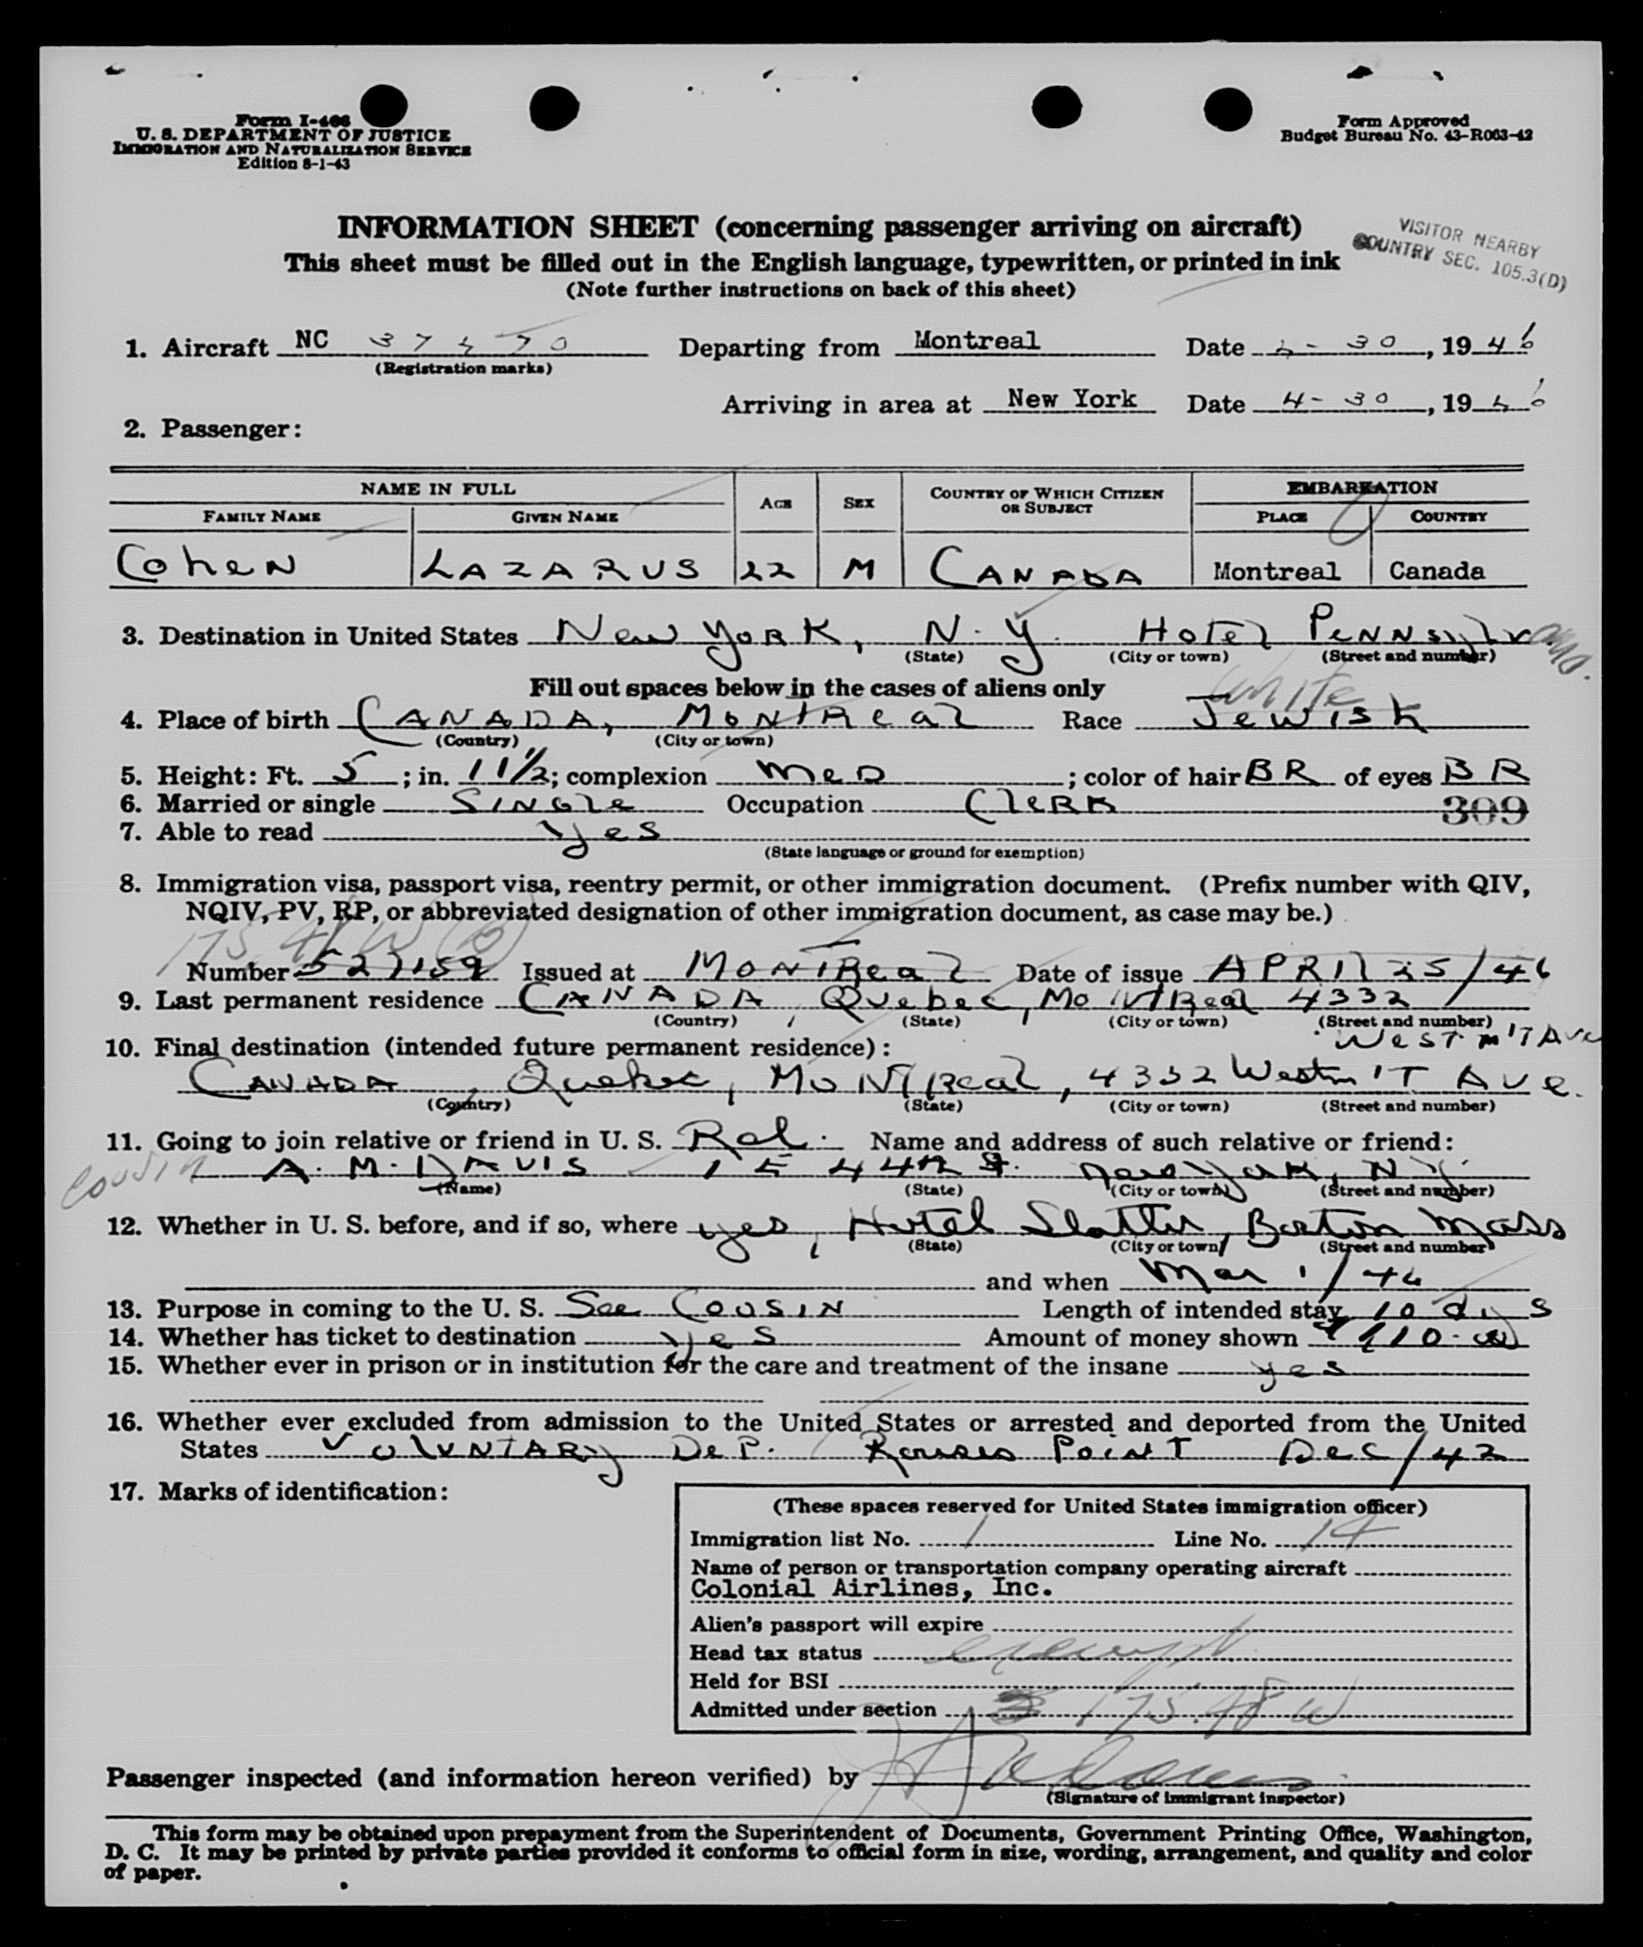 Form I-466
U. S. DEPARTMENT OF JUSTICE
IMMIGRATION AND NATURALIZATION SERVICE
Edition 8-1-43
Form Approved
Budget Bureau No. 43-R063-42
INFORMATION SHEET (concerning passenger arriving on aircraft)
This sheet must be filled out in the English language, typewritten, or printed in ink
(Note further instructions on back of this sheet)
VISITOR NEARBY
COUNTRY SEC. 105.3(D)
1. Aircraft NC 37470 Departing from Montreal Date 4-30, 1946
(Registration marks)
Arriving in area at New York Date 4-30, 1946
2. Passenger:
NAME IN FULL AGE SEX COUNTRY OF WHICH CITIZEN OR SUBJECT EMBARKATION
FAMILY NAME GIVEN NAME PLACE COUNTRY
Cohen LAZARUS 22 M CANADA Montreal Canada
3. Destination in United States New YORK, N.Y. Hotel Pennsylvania.
(State) (City or town) (Street and number)
Fill out spaces below in the cases of aliens only
White
4. Place of birth CANADA, MONTREAL Race Jewish
(Country) (City or town)
5. Height: Ft. 5; in. 11 1/2"; complexion MED; color of hair BR of eyes BR
6. Married or single SINGLE Occupation Clerk
309
7. Able to read yes
(State language or ground for exemption)
8. Immigration visa, passport visa, reentry permit, or other immigration document. (Prefix number with QIV,
NQIV, PV, RP, or abbreviated designation of other immigration document, as case may be.)
175.48 W
Number 527159 Issued at MONTREAL Date of issue APRIL 25/46
9. Last permanent residence CANADA, Quebec, Montreal 4332
(Country) (State) (City or town) (Street and number)
WESTM'T Ave
10. Final destination (intended future permanent residence):
CANADA, Quebec, MONTREAL, 4332 Westm'T Ave.
(Country) (State) (City or town) (Street and number)
11. Going to join relative or friend in U. S. Rel. Name and address of such relative or friend:
cousin A. M. DAVIS 1 E 44th St. New York, N.Y.
(Name) (State) (City or town) (Street and number)
12. Whether in U. S. before, and if so, where yes, Hotel Slatler, Boston Mass
(State) (City or town) (Street and number)
and when Mar 1/46
13. Purpose in coming to the U. S. See Cousin Length of intended stay 10 days
14. Whether has ticket to destination yes Amount of money shown $110.00
15. Whether ever in prison or in institution for the care and treatment of the insane yes
16. Whether ever excluded from admission to the United States or arrested and deported from the United
States VOLUNTARY DEP. Rouses POINT Dec/42
17. Marks of identification:
(These spaces reserved for United States immigration officer)
Immigration list No. 1 Line No. 14
Name of person or transportation company operating aircraft
Colonial Airlines, Inc.
Alien's passport will expire
Head tax status exempt
Held for BSI
Admitted under section 175.48 W
Passenger inspected (and information hereon verified) by
(Signature of immigrant inspector)
This form may be obtained upon prepayment from the Superintendent of Documents, Government Printing Office, Washington,
D. C. It may be printed by private parties provided it conforms to official form in size, wording, arrangement, and quality and color
of paper.